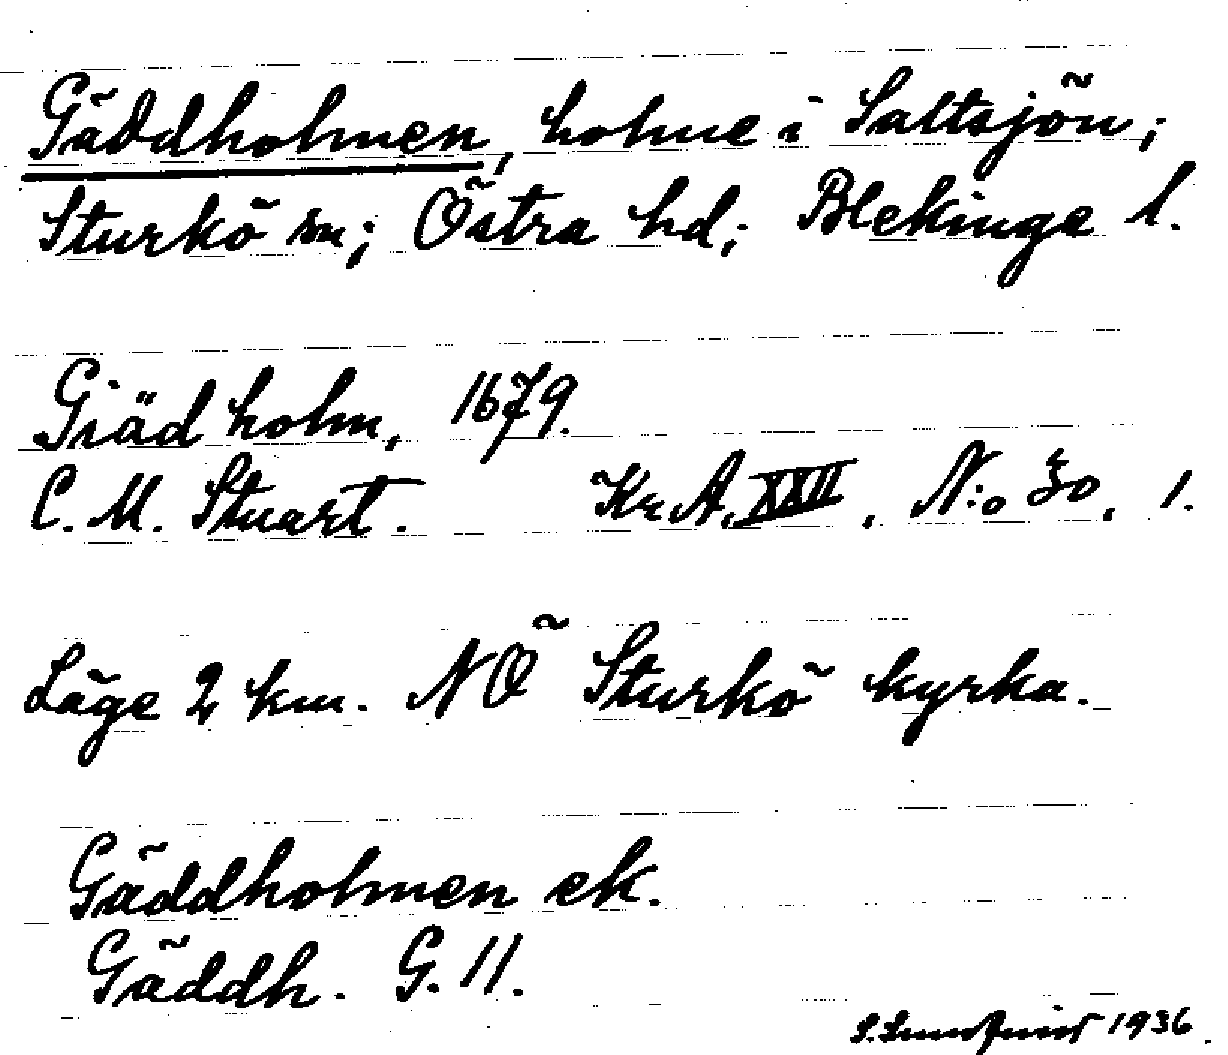 Gäddholmen, holme i Saltsjön;
Sturkö sn; Östra hd; Blekinge l.
Giäd holm, 1679.
C. M. Stuart. Kr. A. XXII, N:o 30, 1.
Läge 2 km. NÖ Sturkö kyrka.
Gäddholmen ek.
Gäddh. G. 11.
1936